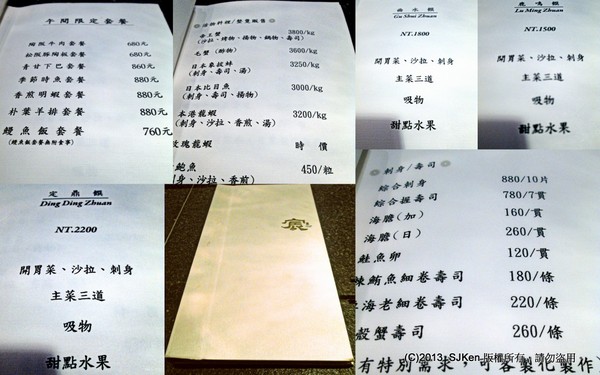 午間限定套餐
680元
松阪豚陶板套餐 680元
青甘下巴套餐 860元
季節時魚套餐 880元
香煎明蝦套餐 880元
朴葉羊排套餐 880元
鰻魚飯套餐 760元
(鰻魚飯套餐無附食事)
3800/kg
3600/kg
3250/kg
(刺身、壽司、湯)
日本比目魚 3000/kg
(刺身、壽司、揚物)
本港龍蝦 3200/kg
(刺身、沙拉、香煎、湯)
玫瑰龍蝦 時價
鮑魚 450/粒
身、沙拉、香煎)
Gu Shui Zhuan
NT.1800
開胃菜、沙拉、刺身
主菜三道
吸物
甜點水果
鹿鳴饌
Lu Ming Zhuan
NT.1500
開胃菜、沙拉、刺身
主菜三道
吸物
甜點水果
定鼎饌
Ding Ding Zhuan
NT.2200
開胃菜、沙拉、刺身
主菜三道
吸物
甜點水果
宸
刺身/壽司
綜合刺身 880/10片
綜合握壽司 780/7貫
海膽(加) 160/貫
海膽(日) 260/貫
鮭魚卵 120/貫
鮪魚細卷壽司 180/條
海老細卷壽司 220/條
殼蟹壽司 260/條
有特別需求，可客製化製作
(C)2013, SJKen 版權所有，請勿盜用